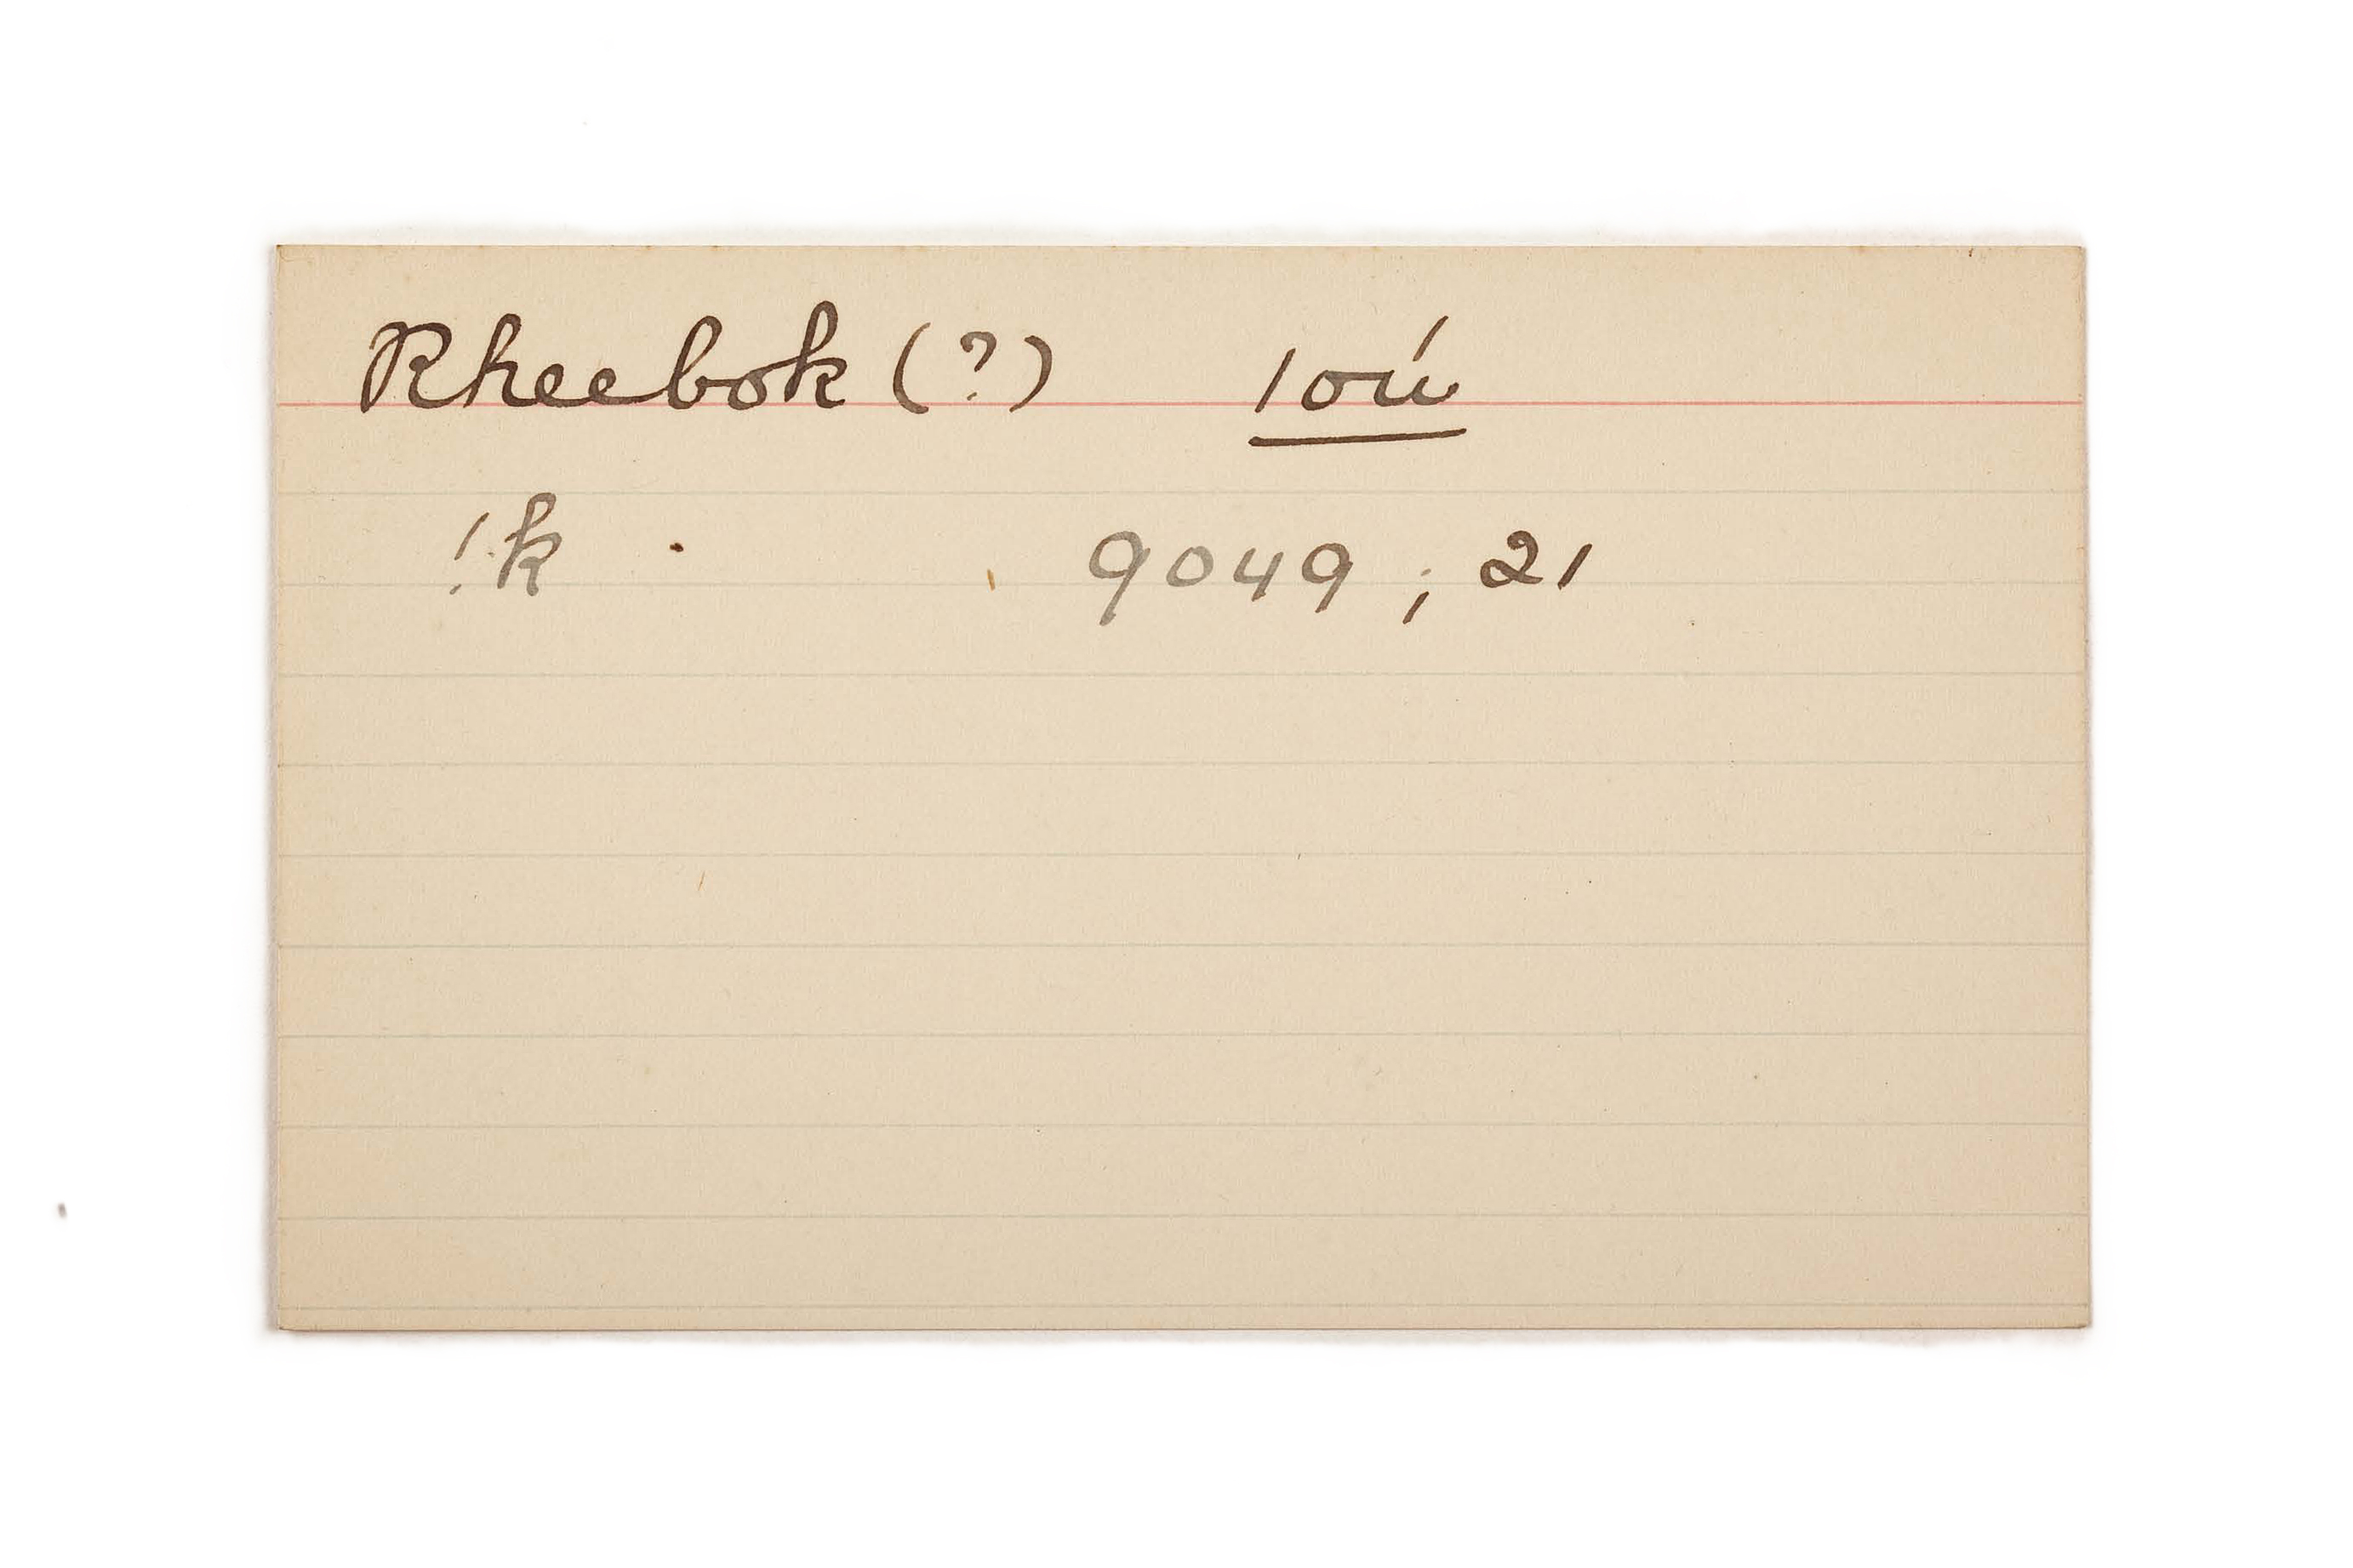 Rheebok (?) ǀoú
!k 9049 ; 21